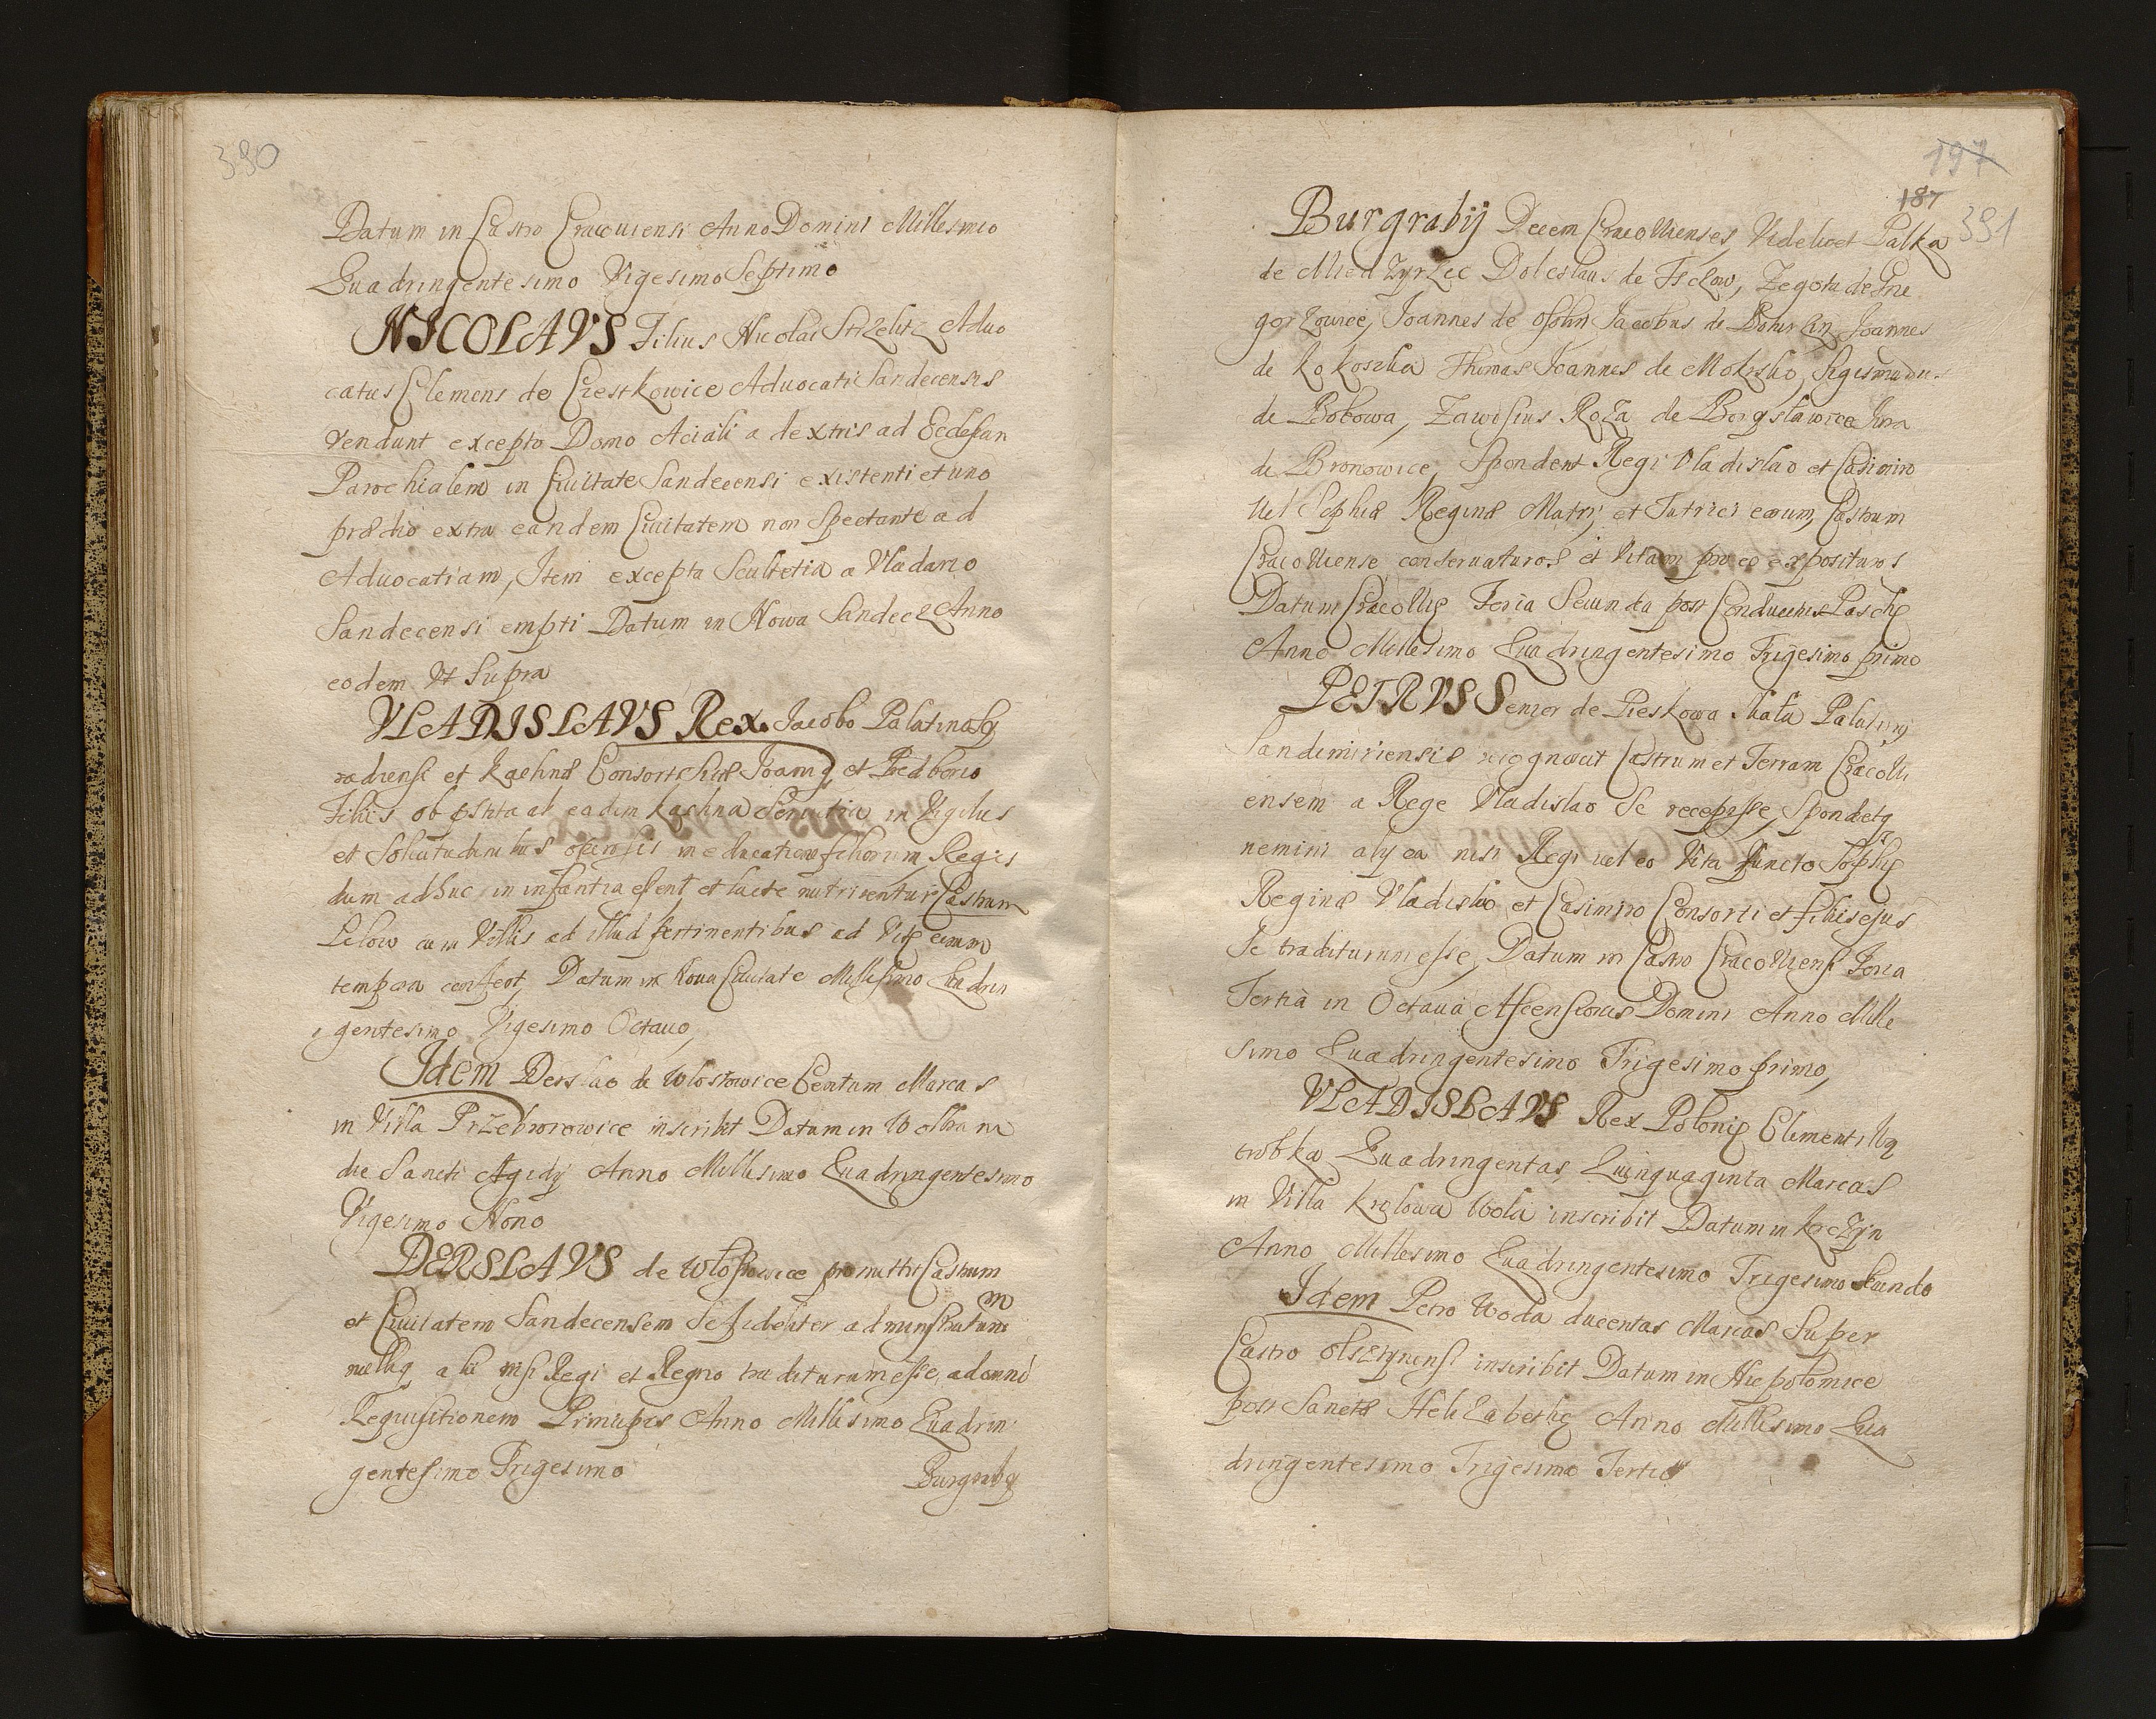 390
Datum in Castro Cracouiensi Anno Domini Millesimo
Quadringentesimo Vigesimo Septimo
NICOLAVS Filius Nicolai Strzelicz Aduo
catus Clemens de Czestkowice Aduocati Sandecensis
Vendunt excepto Domo Aciali a dextris ad Ecclesian
Parochialem in Ciuitate Sandecensi existenti et uno
prædio extra eandem Ciuitatem non Spectante ad
Aduocatiam, Item excepta Scultetia a Vladario
Sandecensi empti Datum in Nowa Sandecz Anno
eodem Vt Supra
VLADISLAVS Rex Jacobo Palatino Sy
radiensi et Kachnæ Consorti suæ Joanni et Predborio
Filiis ob pstita ab eadem Kachna Seruitia in Vigiliis
et Solicitudinibus ostensis in educatione filiorum Regis
dum adhuc in infantia essent et lacte nutrirentur Castrum
Lelow cum Villis ad illud pertinentibus ad Vitę eorum
tempora confert, Datum in Noua Ciuitate Millesimo Quadrin
gentesimo Vigesimo Octauo,
Idem Derslao de Wlostowice Centum Marcas
in Villa Przeborowice inscribit Datum in Wolbram
die Sancti Ægidij Anno Millesimo Quadringentesimo
Vigesimo Nono
DERSLAVS de Wlostowice promittit Castrum
et Ciuitatem Sandecensem Se fideliter administraturum
nulliq alii nisi Regi et Regno traditurum esse, ad omnē
Requisitionem Principis Anno Millesimo Quadrin
gentesimo Trigesimo
Burgraby
197
187
391
Burgrabij Decem Cracouienses, Videlicet Palka
de Miedzyrzec Doleslaus de Tczow, Zegota de Gne
gorzowice, Joannes de Ossolin Jacobus de Boturzin Joannes
de Kokoszka Thomas Joannes de Mokrsko, Sigismudus
de Bobowa, Zawissius Roza de Borzslawice Jura
de Bronowice, Spondent Regi Vladislao et Casimiro
Vel Sophiæ Reginæ Matri, et Tutrici eorum, Castrum
Cracouiense conseruaturos et Vitam pro eo exposituros
Datum Cracouię Feria Secunda post Conductus Paschę
Anno Millesimo Quadringentesimo Trigesimo primo
PETRVS Senior de Pieskowa Skała Palatinj
Sandimiriensis recognouit Castrum et Terram Cracoui
ensem a Rege Vladislao Se recepisse, Spondetq
nemini alij ea nisi Regi uel eo Vita functo Sophię
Reginæ Vladislao et Casimiro Consorti et filiis ejus
Se traditurum esse, Datum in Castro Cracouiensi Feria
Tertia in Octaua Ascensionis Domini Anno Mille
simo Quadringentesimo Trigesimo primo,
VLADISLAVS Rex Polonię Clementi Wą
trobka Quadringentas Quinquaginta Marcas
in Villa Krolowa Wola inscribit Datum in Korczyn
Anno Millesimo Quadringentesimo Trigesimo Secundo
Idem Petro Woda ducentas Marcas Super
Castro Olsztynensi inscribit Datum in Niepolomice
post Sanctæ Helizabethę Anno Millesimo Qua
dringentesimo Trigesimo Tertio